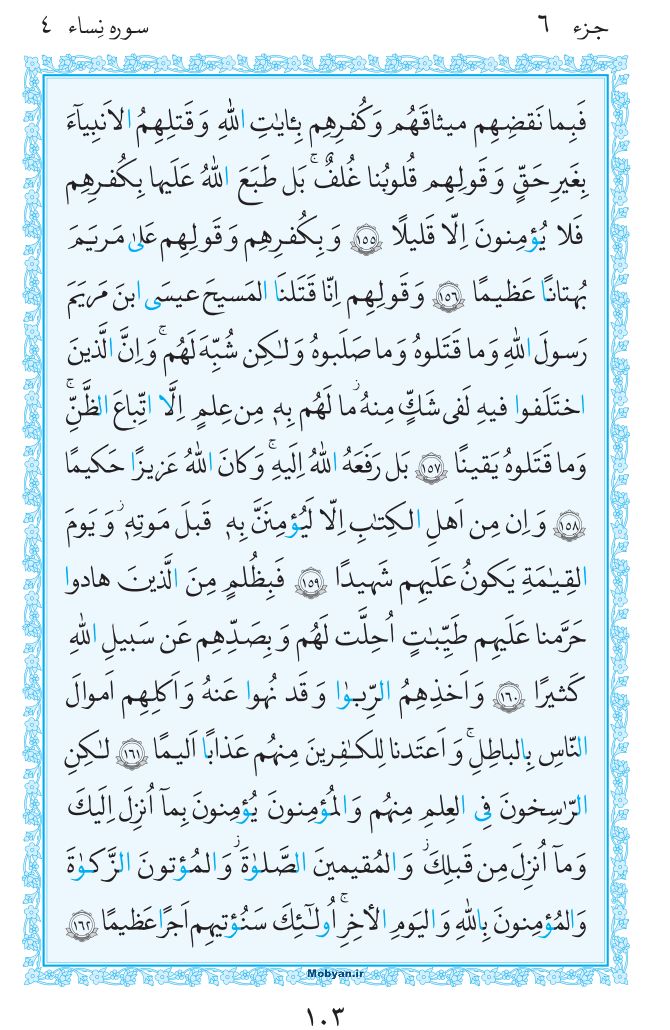 جزء ٦ سوره نِساء ٤
فَبِما نَقضِهِم ميثاقَهُم وَكُفرِهِم بِـٔاياتِ اللهِ وَ قَتلِهِمُ الاَنبِيآءَ
بِغَيرِ حَقٍّ وَ قَولِهِم قُلوبُنا غُلفٌ ۚ بَل طَبَعَ اللهُ عَلَيها بِكُفرِهِم
فَلا يُؤمِنونَ اِلّا قَليلًا ﴿١٥٥﴾ وَ بِكُفرِهِم وَ قَولِهِم عَلىٰ مَريَمَ
بُهتانًا عَظيمًا ﴿١٥٦﴾ وَ قَولِهِم اِنّا قَتَلنَا المَسيحَ عيسَى ابنَ مَريَمَ
رَسولَ اللهِ وَما قَتَلوهُ وَما صَلَبوهُ وَلـٰكِن شُبِّهَ لَهُم ۚ وَاِنَّ الَّذينَ
اختَلَفوا فيهِ لَفى شَكٍّ مِنهُ ۚ ما لَهُم بِهٖ مِن عِلمٍ اِلَّا اتِّباعَ الظَّنِّ ۚ
وَما قَتَلوهُ يَقينًا ﴿١٥٧﴾ بَل رَفَعَهُ اللهُ اِلَيهِ ۚ وَكانَ اللهُ عَزيزًا حَكيمًا
﴿١٥٨﴾ وَ اِن مِن اَهلِ الكِتـٰبِ اِلّا لَيُؤمِنَنَّ بِهٖ قَبلَ مَوتِهٖ ۚ وَ يَومَ
القِيـٰمَةِ يَكونُ عَلَيهِم شَهيدًا ﴿١٥٩﴾ فَبِظُلمٍ مِنَ الَّذينَ هادوا
حَرَّمنا عَلَيهِم طَيِّبـٰتٍ اُحِلَّت لَهُم وَ بِصَدِّهِم عَن سَبيلِ اللهِ
كَثيرًا ﴿١٦٠﴾ وَ اَخذِهِمُ الرِّبوٰا وَ قَد نُهوا عَنهُ وَ اَكلِهِم اَموالَ
النّاسِ بِالباطِلِ ۚ وَ اَعتَدنا لِلكـٰفِرينَ مِنهُم عَذابًا اَليمًا ﴿١٦١﴾ لـٰكِنِ
الرّٰسِخونَ فِى العِلمِ مِنهُم وَالمُؤمِنونَ يُؤمِنونَ بِمآ اُنزِلَ اِلَيكَ
وَمآ اُنزِلَ مِن قَبلِكَ ۚ وَالمُقيمينَ الصَّلوٰةَ ۚ وَالمُؤتونَ الزَّكوٰةَ
وَالمُؤمِنونَ بِاللهِ وَاليَومِ الأخِرِ ۚ اُولـٰٓئِكَ سَنُؤتيهِم اَجرًا عَظيمًا ﴿١٦٢﴾
Mobyan.ir
١٠٣